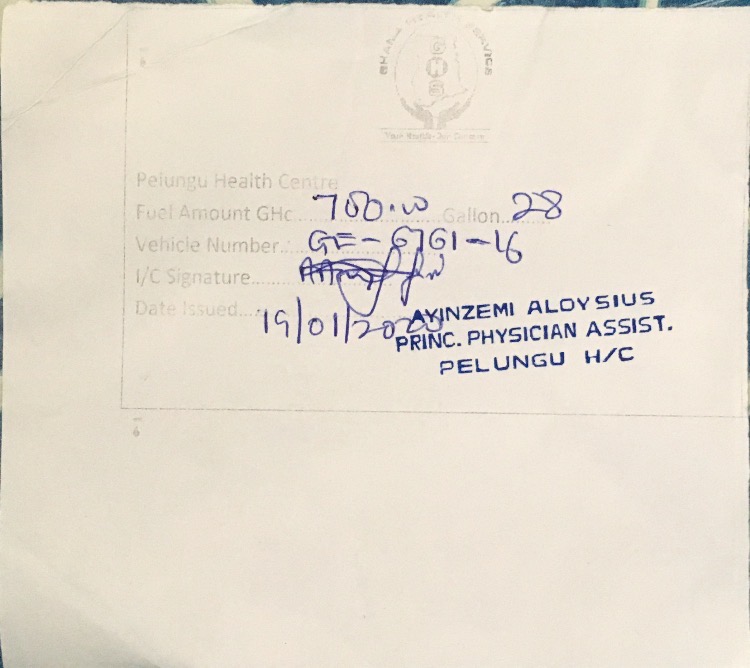 GHANA HEALTH SERVICE
GHS
Your Health - Our Concern
Pelungu Health Centre
Fuel Amount GHc 700.00 Gallon 28
Vehicle Number.: GE-6761-16
I/C Signature
Date Issued 19/01/2020
AYINZEMI ALOYSIUS
PRINC. PHYSICIAN ASSIST.
PELUNGU H/C